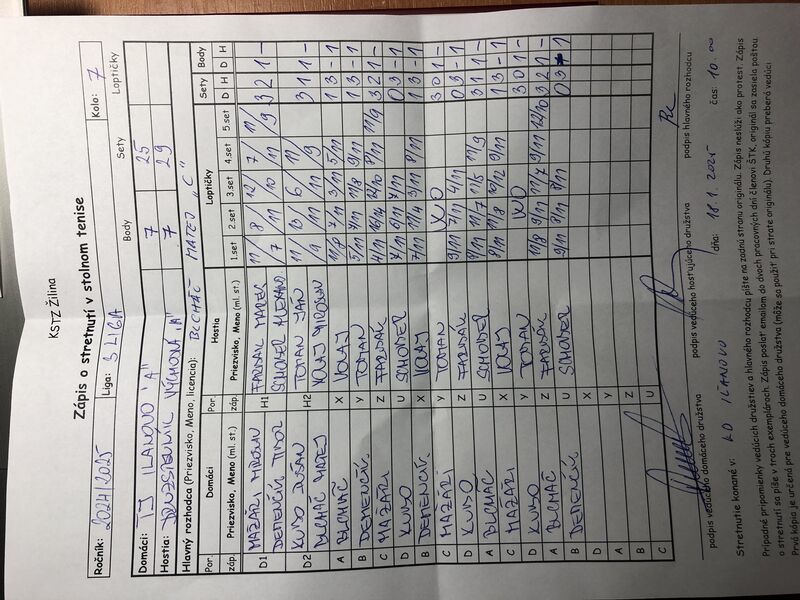 KSTZ Žilina
Zápis o stretnutí v stolnom tenise
Ročník: 2024/2025 Liga: 3 LIGA Kolo: 7
Body Sety Loptičky
Domáci: TJ ILANOVO "A" 7 25
Hostia: VÝCHODNÁ "A" 7 29
Hlavný rozhodca (Priezvisko, Meno, licencia): BLCHÁČ MATEJ "C"
Por. Domáci Por. Hostia Loptičky Sety Body
záp. Priezvisko, Meno (ml. st.) záp. Priezvisko, Meno (ml. st.) 1.set 2.set 3.set 4.set 5.set D H D H
D1 MAŽÁRI H1 MATEJ 11/7 8/11 12/10 7/11 11/9 3 2 1 -
DEMENČÍK TIBOR SCHODER
D2 KUBO DUŠAN H2 TOMAN JÁN 11/9 13/11 6/11 11/9 3 1 1 -
BLCHÁČ MATEJ
A BLCHÁČ X 11/8 7/11 3/11 5/11 1 3 - 1
B DEMENČÍK Y TOMAN 5/11 7/11 11/8 9/11 1 3 - 1
C MAŽÁRI Z 4/11 12/10 8/11 11/9 3 2 1 -
D KUBO U SCHODER 7/11 6/11 7/11 0 3 - 1
B DEMENČÍK X 7/11 11/4 3/11 8/11 1 3 - 1
C MAŽÁRI Y TOMAN WO 3 0 1 -
D KUBO Z 9/11 7/11 4/11 0 3 - 1
A BLCHÁČ U SCHODER 9/11 11/7 11/5 11/9 3 1 1 -
C MAŽÁRI X 8/11 11/8 10/12 9/11 1 3 - 1
D KUBO Y TOMAN WO 3 0 1 -
A BLCHÁČ Z 11/8 9/11 11/7 9/11 12/10 3 2 1 -
B DEMENČÍK U SCHODER 9/11 8/11 8/11 0 3 - 1
D X
A Y
B Z
C U
podpis vedúceho domáceho družstva podpis vedúceho hosťujúceho družstva podpis hlavného rozhodcu
Stretnutie konané v: KD ILANOVO dňa: 18.1.2025 čas: 10.00
Prípadné pripomienky vedúcich družstiev a hlavného rozhodcu píšte na zadnú stranu originálu. Zápis neslúži ako protest. Zápis
o stretnutí sa píše v troch exemplároch. Zápis poslať emailom do dvoch pracovných dní členovi ŠTK, originál sa zasiela poštou.
Prvá kópia je určená pre vedúceho domáceho družstva (môže sa použiť pri strate originálu). Druhú kópiu preberá vedúci